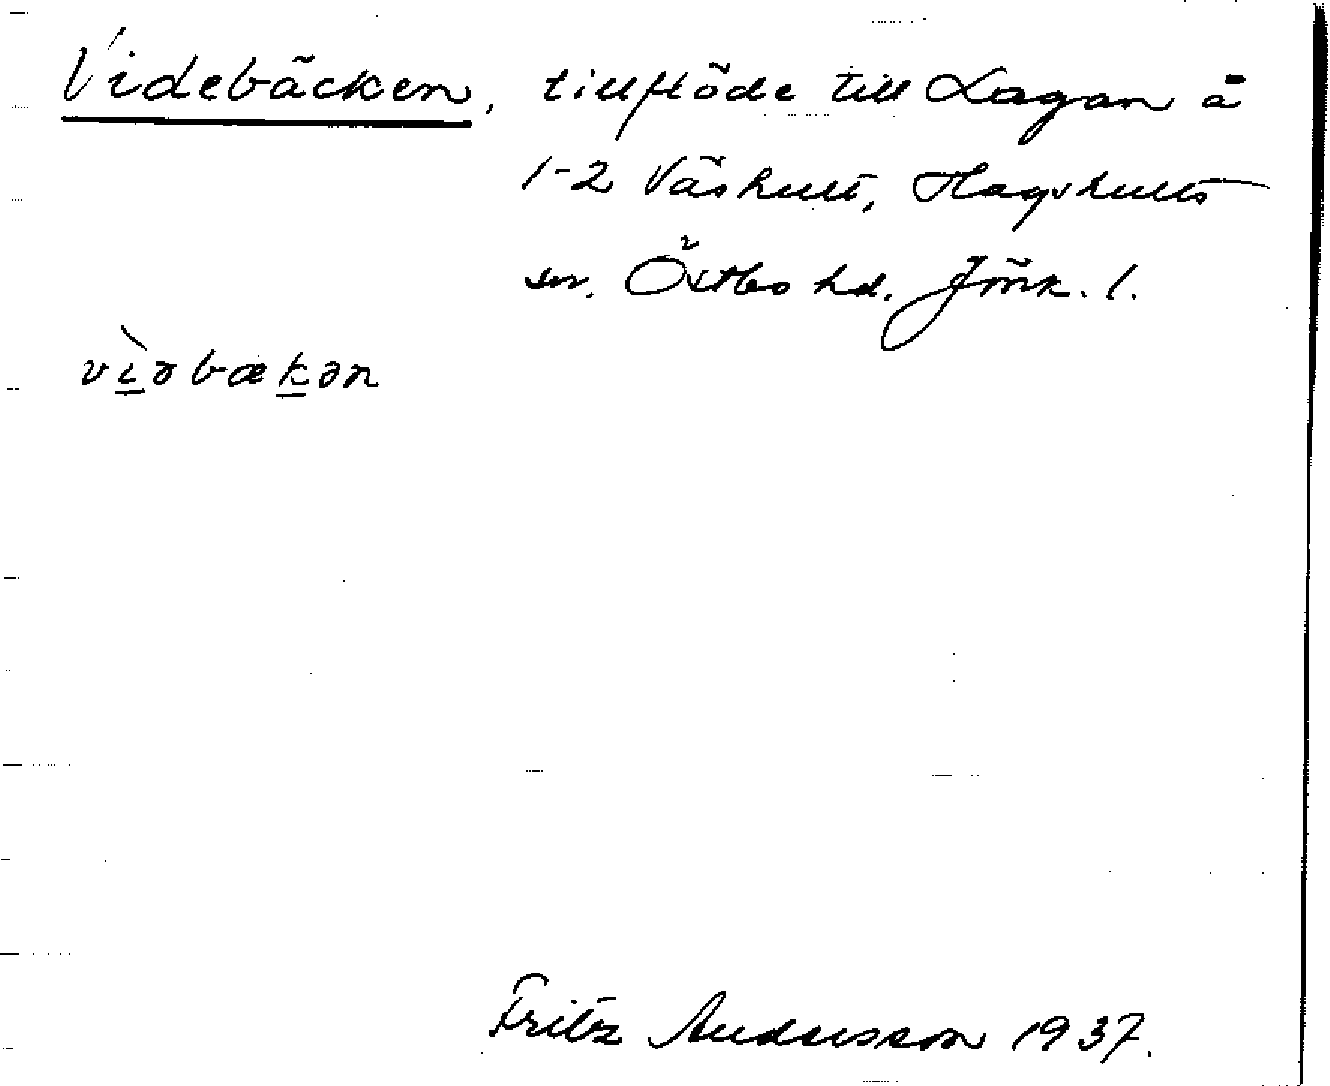 Videbäcken, tillflöde till Lagan å
1-2 Väshult, Hagshults
sn. Östbo hd. Jönk. l.
vìəbækən
Fritz Andersson 1937.